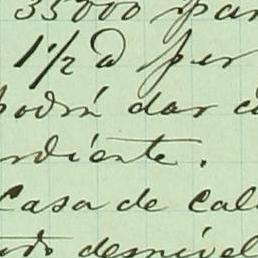 35000 par
1 1/2 @ per
podrá dar c
rdiente.
Casa de cal
todo desnivel